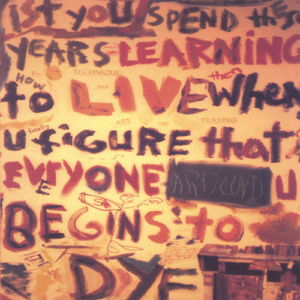 1st YOU SPEND these
YEARS LEARNING
HOW TECHNIQUE then
to LIVE when
ART OF PLAYING
u finally FIGURE that
EVERYONE AROUND u
BEGINS: to
DYE